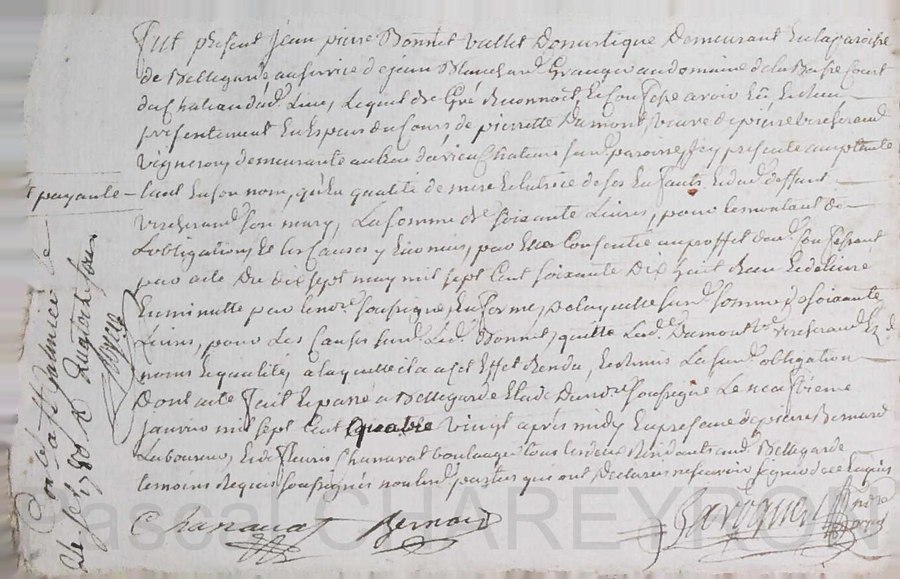 Fut présent Jean pierre Bonnet vallet Domestique Demeurant En la paroisse
de Bellegarde au service de jean Blanchard Granger au domaine de la Basse Court
du Chateau dud. Lieu, Lequel de Gré Reconnoit, Et Confesse avoir Eu, Et Receu
présentement En Especes du Cours de pierrette Dumont, veuve de pierre
vigneron, demeurante au lieu du vieu Chateau sud. paroisse, Icy présente acceptante
payante - tant En son nom, qu'En qualité de mere Et tutrice de ses Enfants Et dud. deffunt
son mary, La somme de soixante Livres, pour le montant de
L'obligation, Et les Causes y Enoncés, par Eux Consentie au proffit dud.
par acte Du dix sept may mil sept Cent soixante Dix huit
En minutte par le no.re soussigné, En forme, De laquelle sud. somme de soixante
Livres, pour Les Causes sud. Led. Bonnet, quitte Lad. Dumont v.e
noms Et qualité, a laquelle il a a Cet Effet Rendu, Et Remis La sud. obligation
Dont acte fait Et passé a Bellegarde Etude Dud. no.re soussigné Le neufvieme
janvier mil sept Cent quatre vingt après midy En présence de pierre Bernard
Laboureur, Et de fleury Chanavat boulanger tous les deux Résidants aud. Bellegarde
témoins Requis soussignés non les d. parties qui ont Déclarés ne scavoir signer de ce Enquis
Chanavat Bernard
Controllé a St Galmier le
de 1780 Reçu
Pascal CHAREYRON